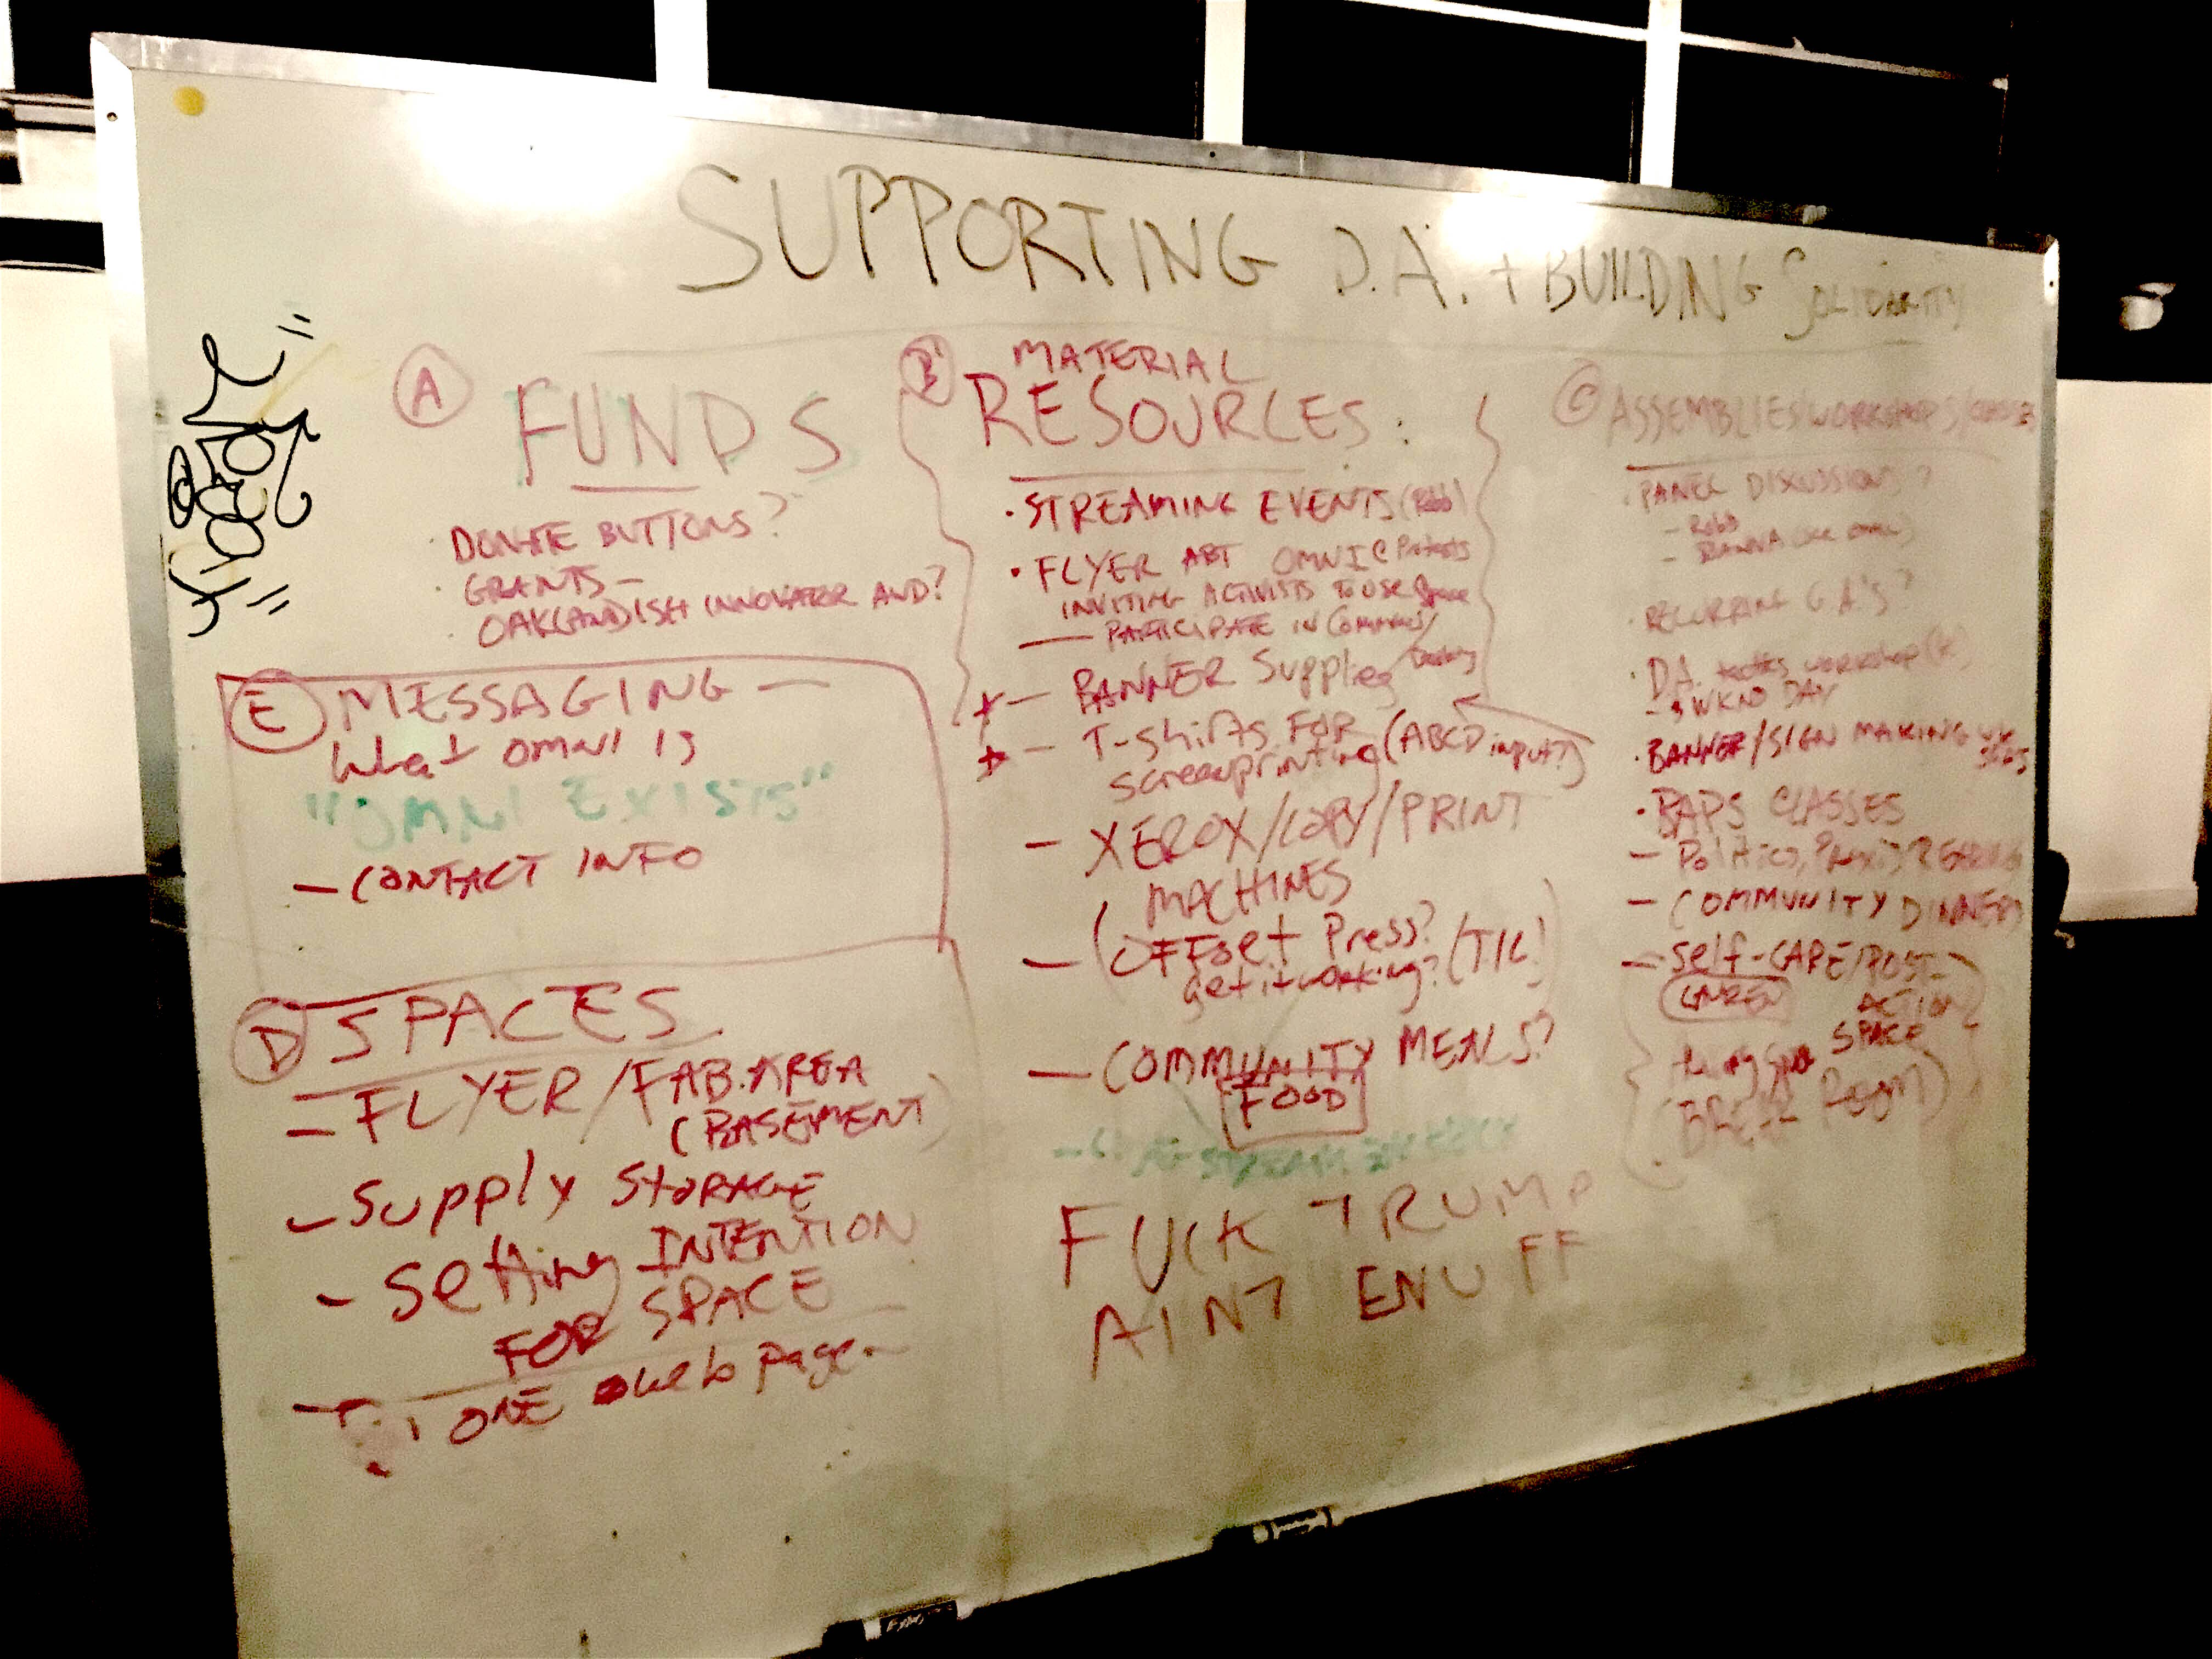 SUPPORTING D.A. + BUILDING SOLIDARITY
A FUNDS
· DONATE BUTTONS?
· GRANTS —
· OAKLANDISH INNOVATOR AND?
E MESSAGING —
What OMNI IS
"OMNI EXISTS"
— CONTACT INFO
D SPACES
— FLYER/FAB. AREA
(BASEMENT)
— Supply STORAGE
— Setting INTENTION
FOR SPACE
ONE web page
B MATERIAL
RESOURCES:
· STREAMING EVENTS (Robb)
· FLYER ABT OMNI @ Protests
INVITING ACTIVISTS TO USE Space
— PARTICIPATE IN COMMONS/
— BANNER Supplies
— T-Shirts FOR
screenprinting (ABCD input?)
— XEROX/COPY/PRINT
MACHINES
— (OFFset Press?
get it working? (TIL)
— COMMUNITY MEALS?
FOOD
FUCK TRUMP
AINT ENUFF
C ASSEMBLIES/WORKSHOPS/
· PANEL DISCUSSIONS?
- Robb
· RECURRING G.A.'S?
· D.A. tactics workshop(s)
- WKND DAY
· BANNER/SIGN MAKING
· BAPS CLASSES
— Politics, Praxis, READING
— COMMUNITY DINNERS
— Self-CARE/POST-
ACTION
SPACE